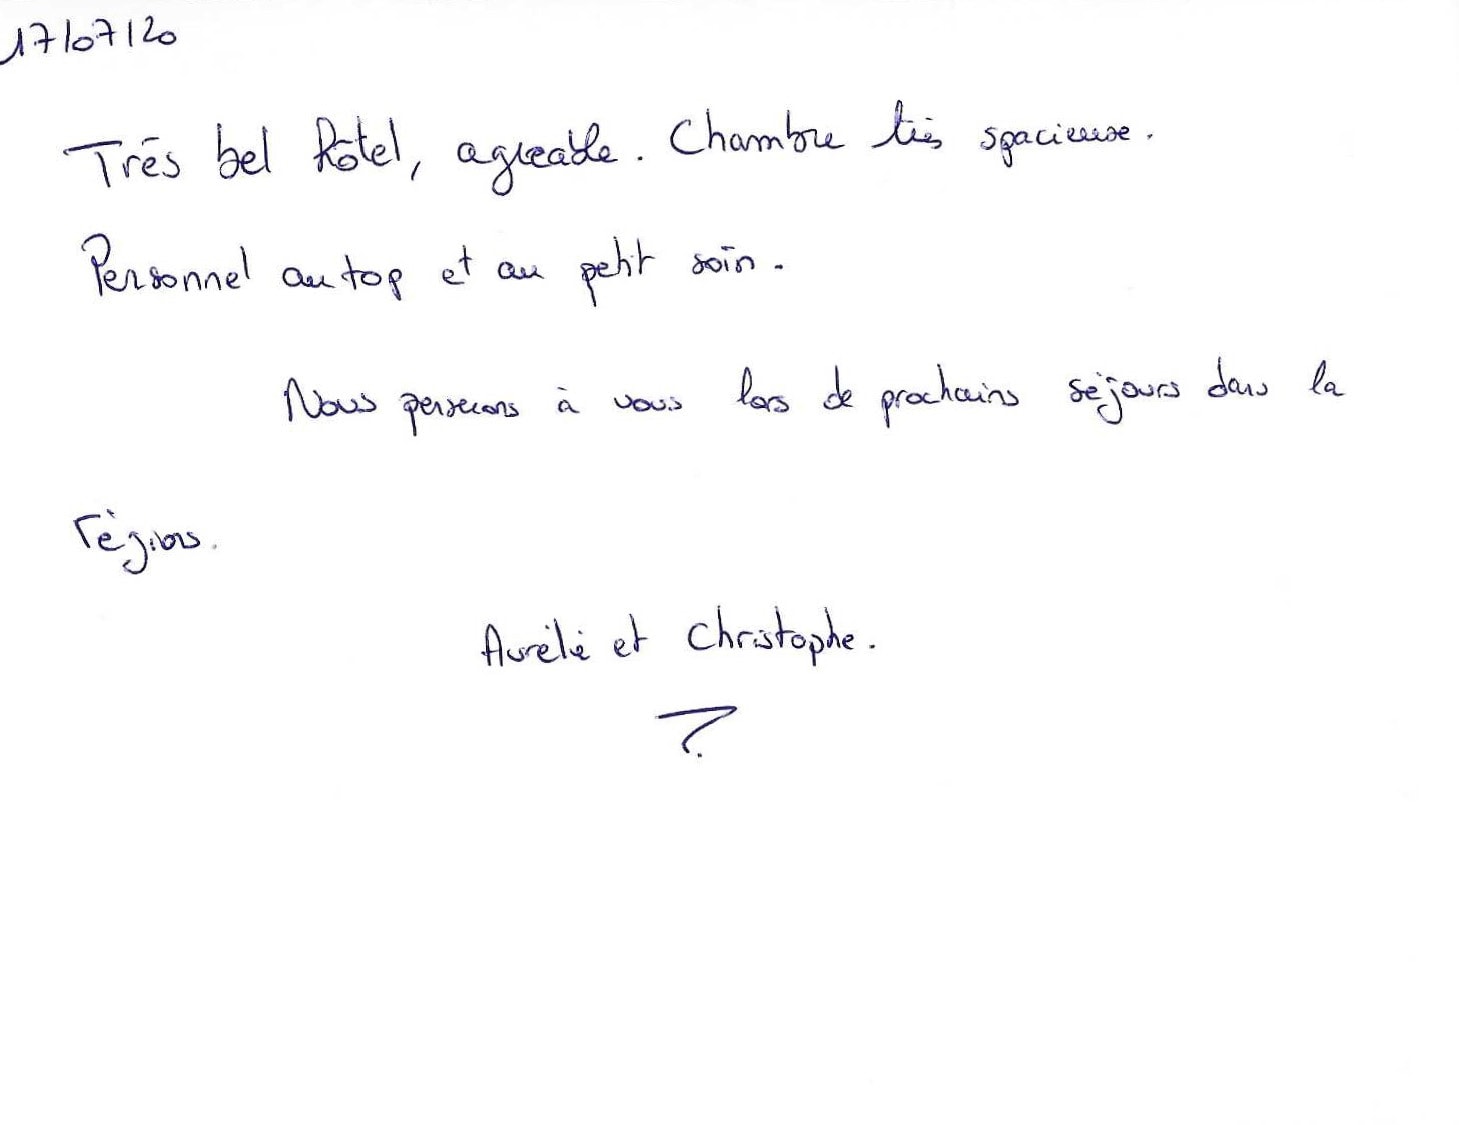 17/07/20
Très bel hôtel, agréable. Chambre très spacieuse.
Personnel au top et au petit soin.
Nous penserons à vous lors de prochains séjours dans la
région.
Aurélie et Christophe.